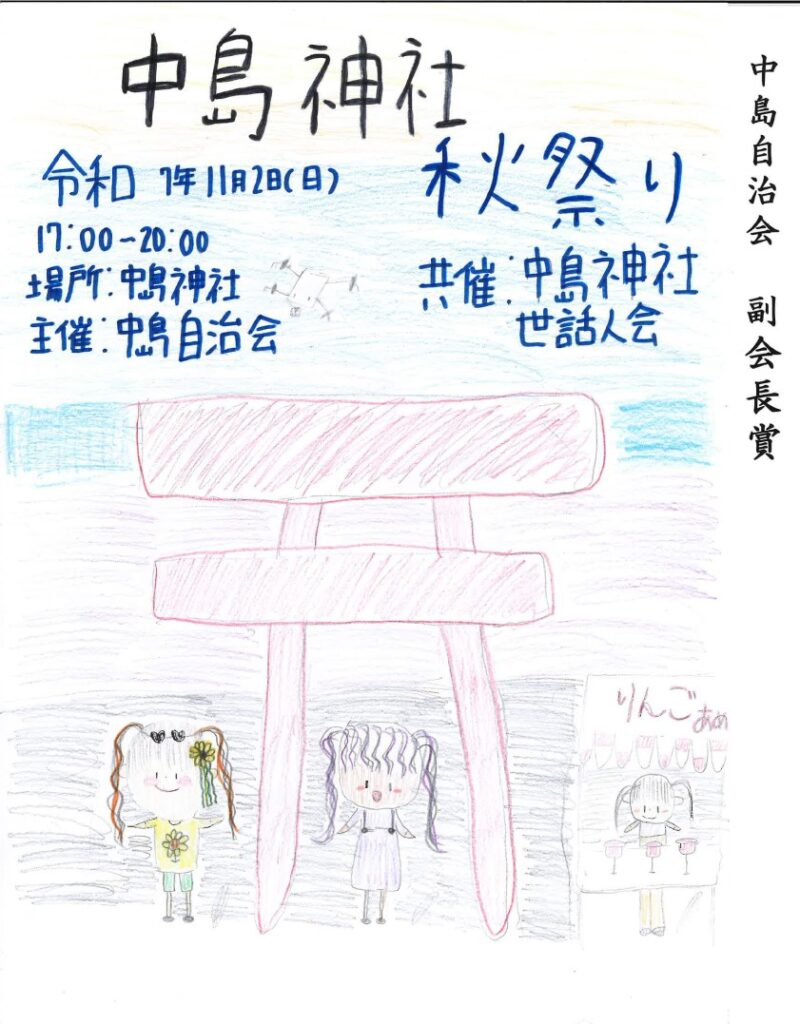 中島神社
秋祭り
令和 7年11月2日(日)
17:00-20:00
場所:中島神社
主催:中島自治会
共催:中島神社
世話人会
りんごあめ
中島自治会 副会長賞